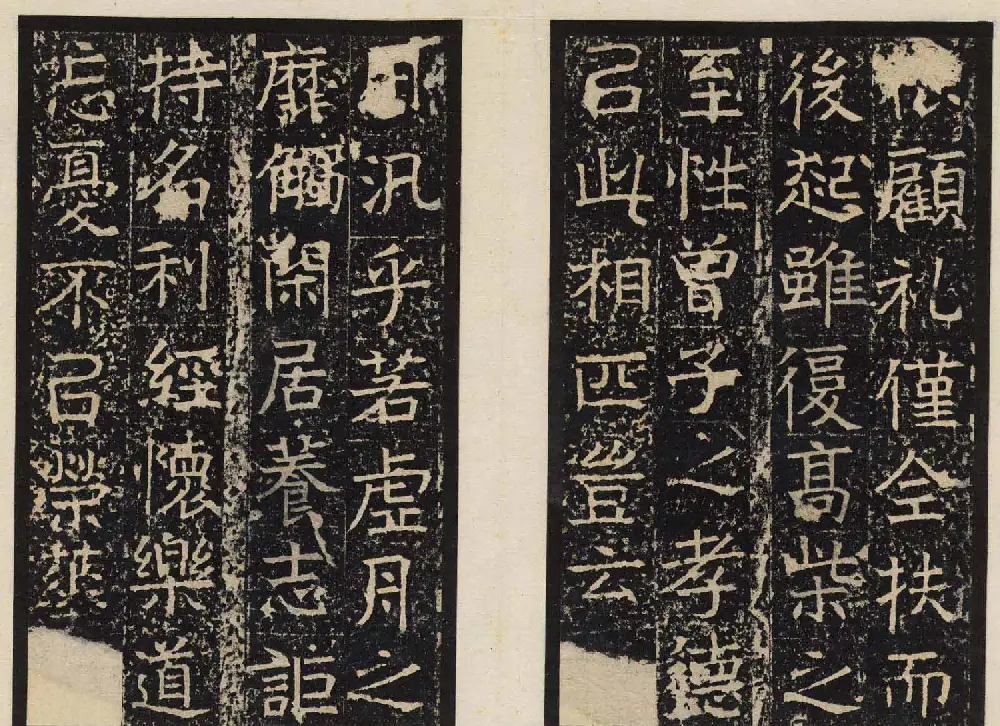 顧礼僅全扶而
後起雖復髙柴之
至性曾子之孝德
㠯此相匹豈云
汎乎若虛舟之
靡觸閑居養志詎
持名利經懷樂道
忘憂不㠯榮